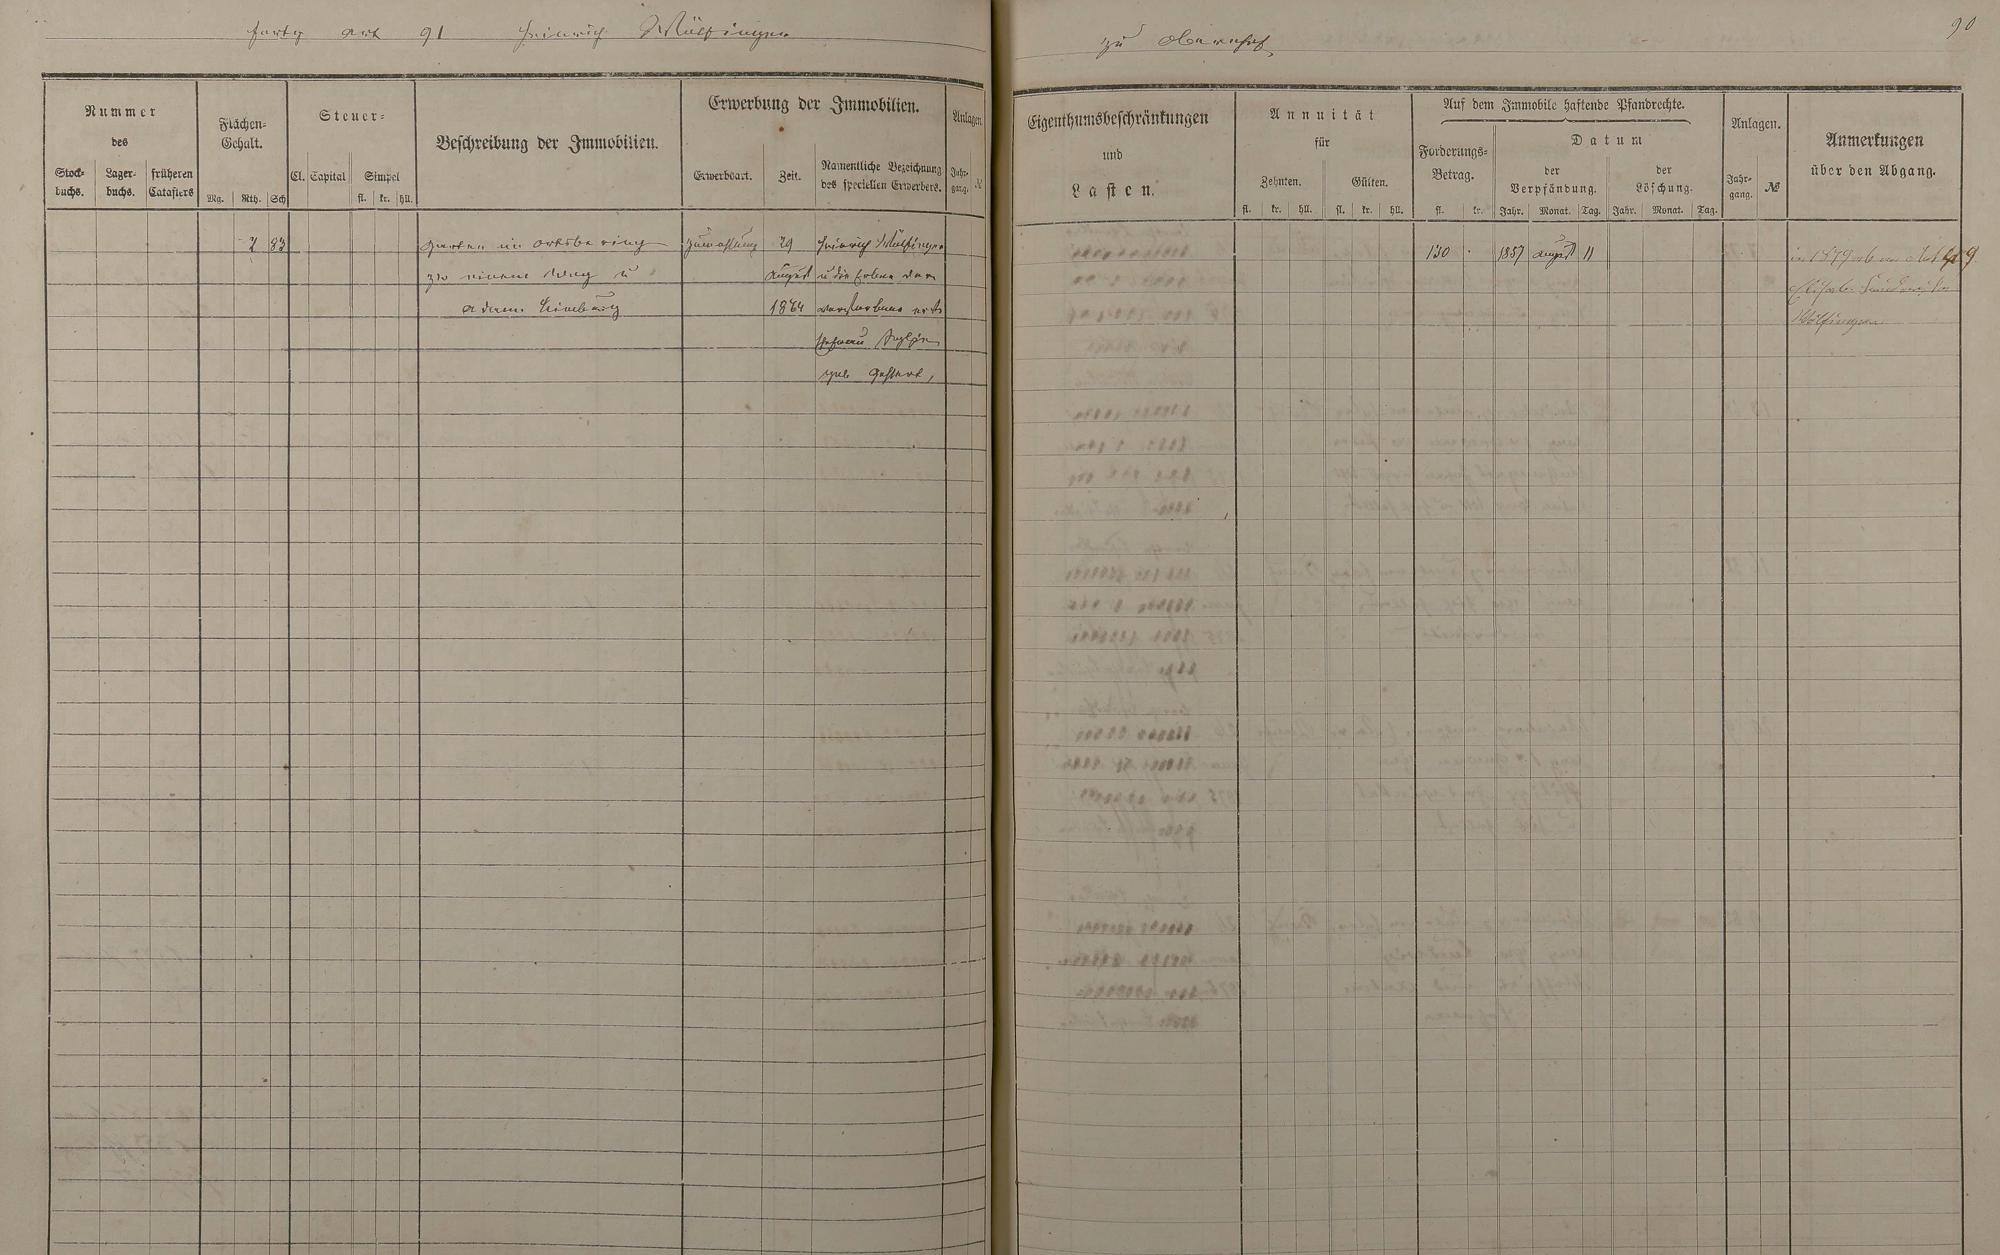 Forts Art 91 Heinrich Wölfinger
zu Obernhof
90
Nummer
des
Stock-
buchs.
Lager-
buchs.
früheren
Catasters
Flächen-
Gehalt.
Mg. Rth. Sch
Steuer-
Cl. Capital Simpel
fl. kr. hll.
Beschreibung der Immobilien.
Erwerbung der Immobilien.
Erwerbsart. Zeit.
Namentliche Bezeichnung
des speciellen Erwerbers.
Anlagen
Jahr-
gang. №
Eigenthumsbeschränkungen
und
Lasten.
Annuität
für
Zehnten. Gülten.
fl. kr. hll. fl. kr. hll.
Auf dem Immobile haftende Pfandrechte.
Forderungs-
Betrag.
fl. kr.
Datum
der
Verpfändung.
der
Löschung.
Jahr. Monat. Tag. Jahr. Monat. Tag.
Anlagen.
Jahr-
gang. №
Anmerkungen
über den Abgang.
2 83 Garten im Ortsbering 29 Heinrich Wölfinger
zw einem Weg u August u die Erben der
Adam 1864 verstorbene
Ehefrau
geb
130 1857 August 11
in 1879 ab an Art
Wölfinger